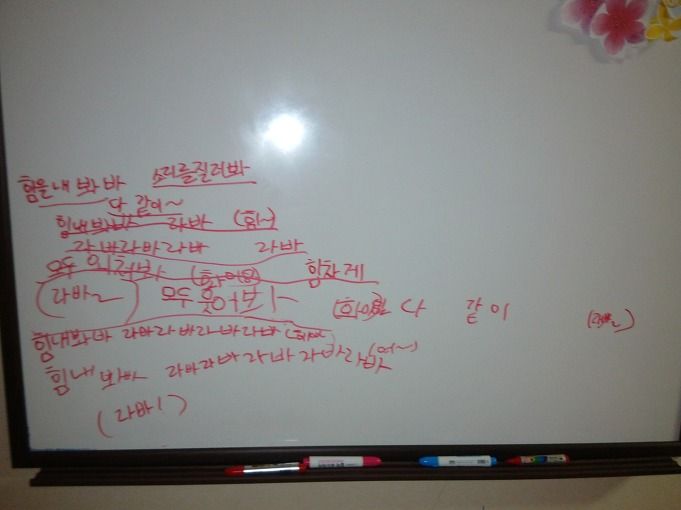 힘을내 봐 바 소리를질러봐
다 같이~
힘내봐바 라바 (하~)
라바라바라바 라바
모두 외쳐봐 (화이팅) 힘차게
(라바~) 모두 다 같이
힘내봐바 라바라바라바라바
힘내 봐바 라바라바라바라바라바
(라바!)